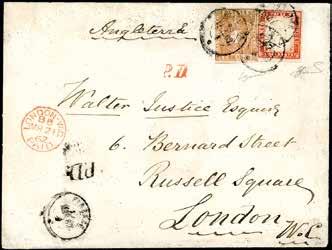 Angleterre
P.D.
Walter Justice Esquire
6 Bernard Street
Russell Square
London
W.C.
LONDON
PAID
P.D.